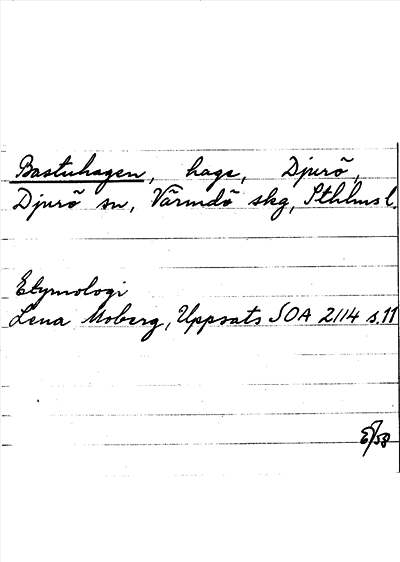 Bastuhagen, hage, Djurö,
Djurö sn, Värmdö skg, Sthlms l.
Etymologi
Lena Moberg, Uppsats SOA 2114 s. 11